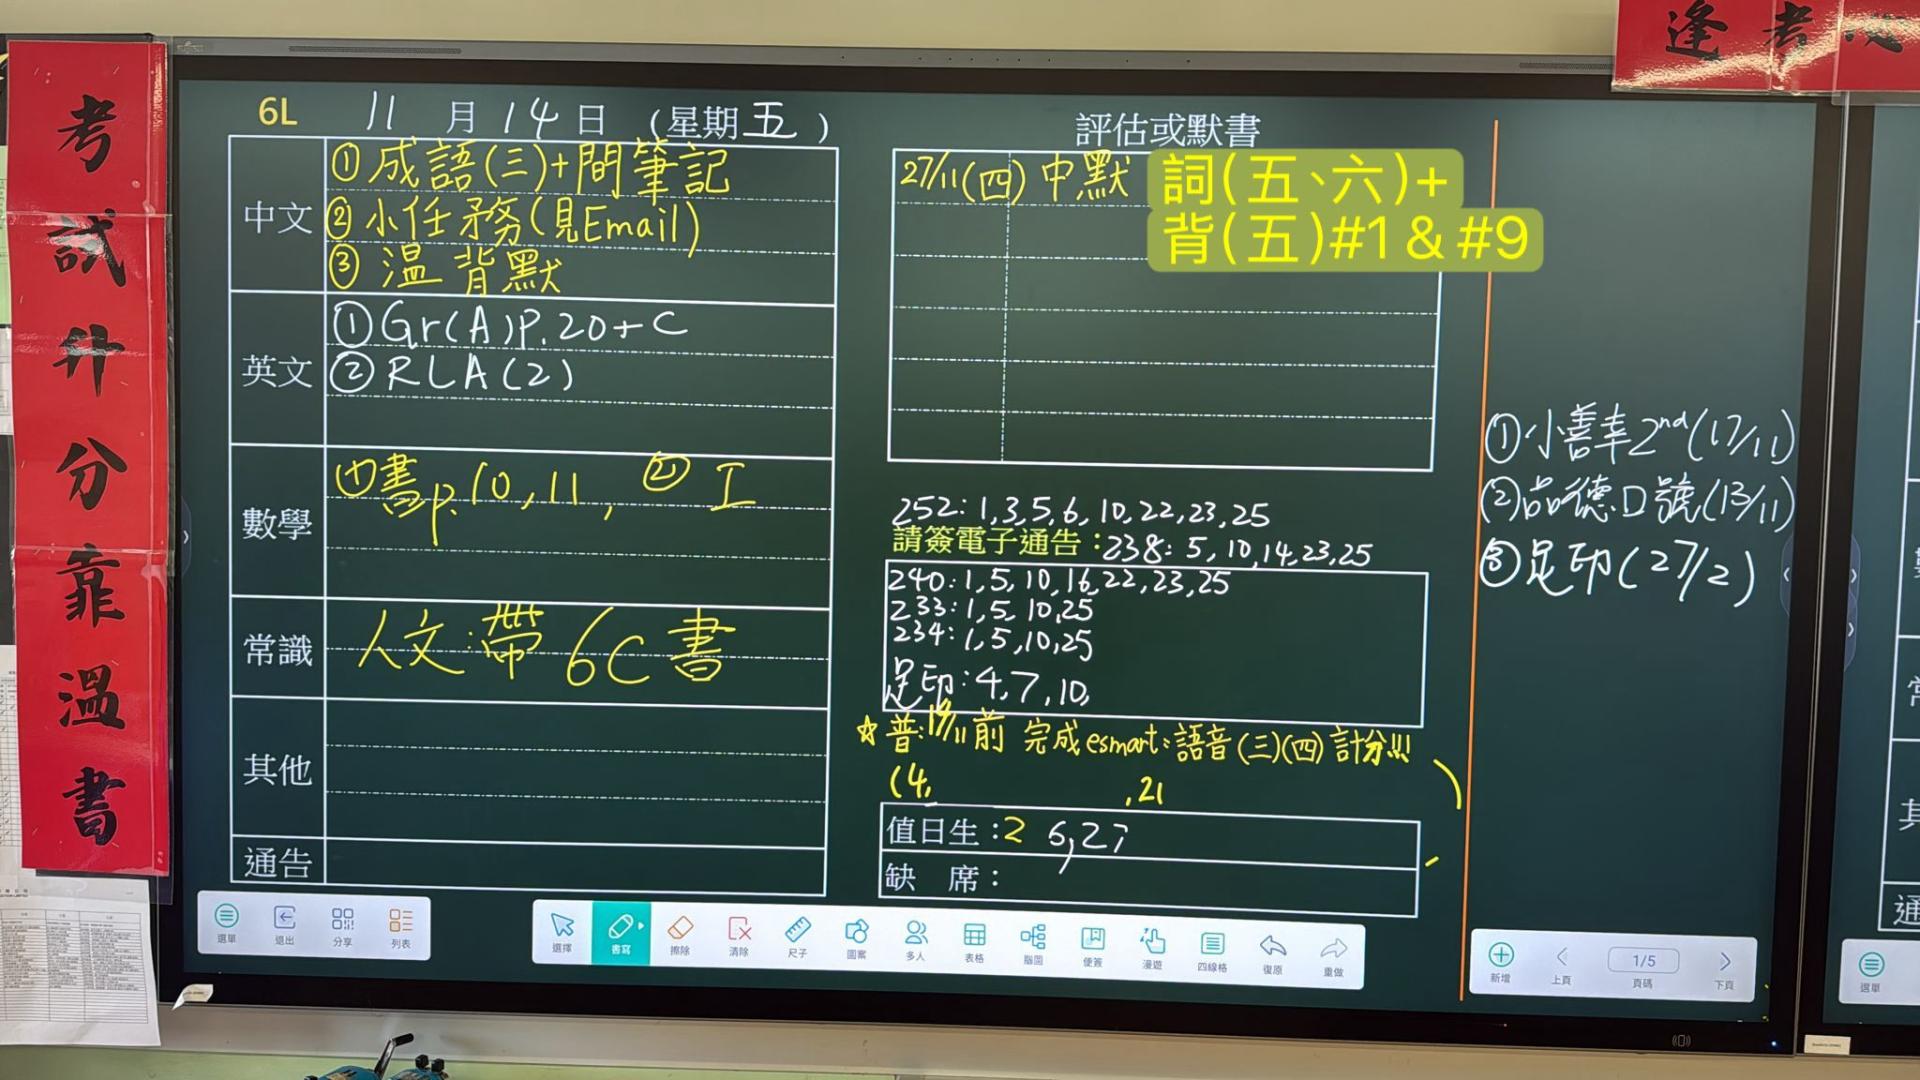 考試升分靠溫書
逢考必
6L 11月14日(星期五)
中文
①成語(三)+間筆記
②小任務(見Email)
③溫背默
英文
①Gr(A)P.20+C
②RLA(2)
數學
①書p.10,11, ②工
常識
人文:帶6C書
其他
通告
評估或默書
27/11(四) 中默 詞(五、六)+
背(五)#1&#9
252:1,3,5,6,10,22,23,25
請簽電子通告:238:5,10,14,23,25
240:1,5,10,16,22,23,25
233:1,5,10,25
234:1,5,10,25
足印:4,7,10,
☆普:19/11前 完成esmart:語音(三)(四)計分!!!
(4, ,21 )
值日生:2 6,27
缺席:
①小善幸2nd(17/11)
②品德口號(13/11)
③足印(27/2)
選單 退出 分享 列表
選擇 書寫 擦除 清除 尺子 圖案 多人 表格 腦圖 便簽 漫遊 四線格 復原 重做
新增 上頁 1/5 頁碼 下頁
選單